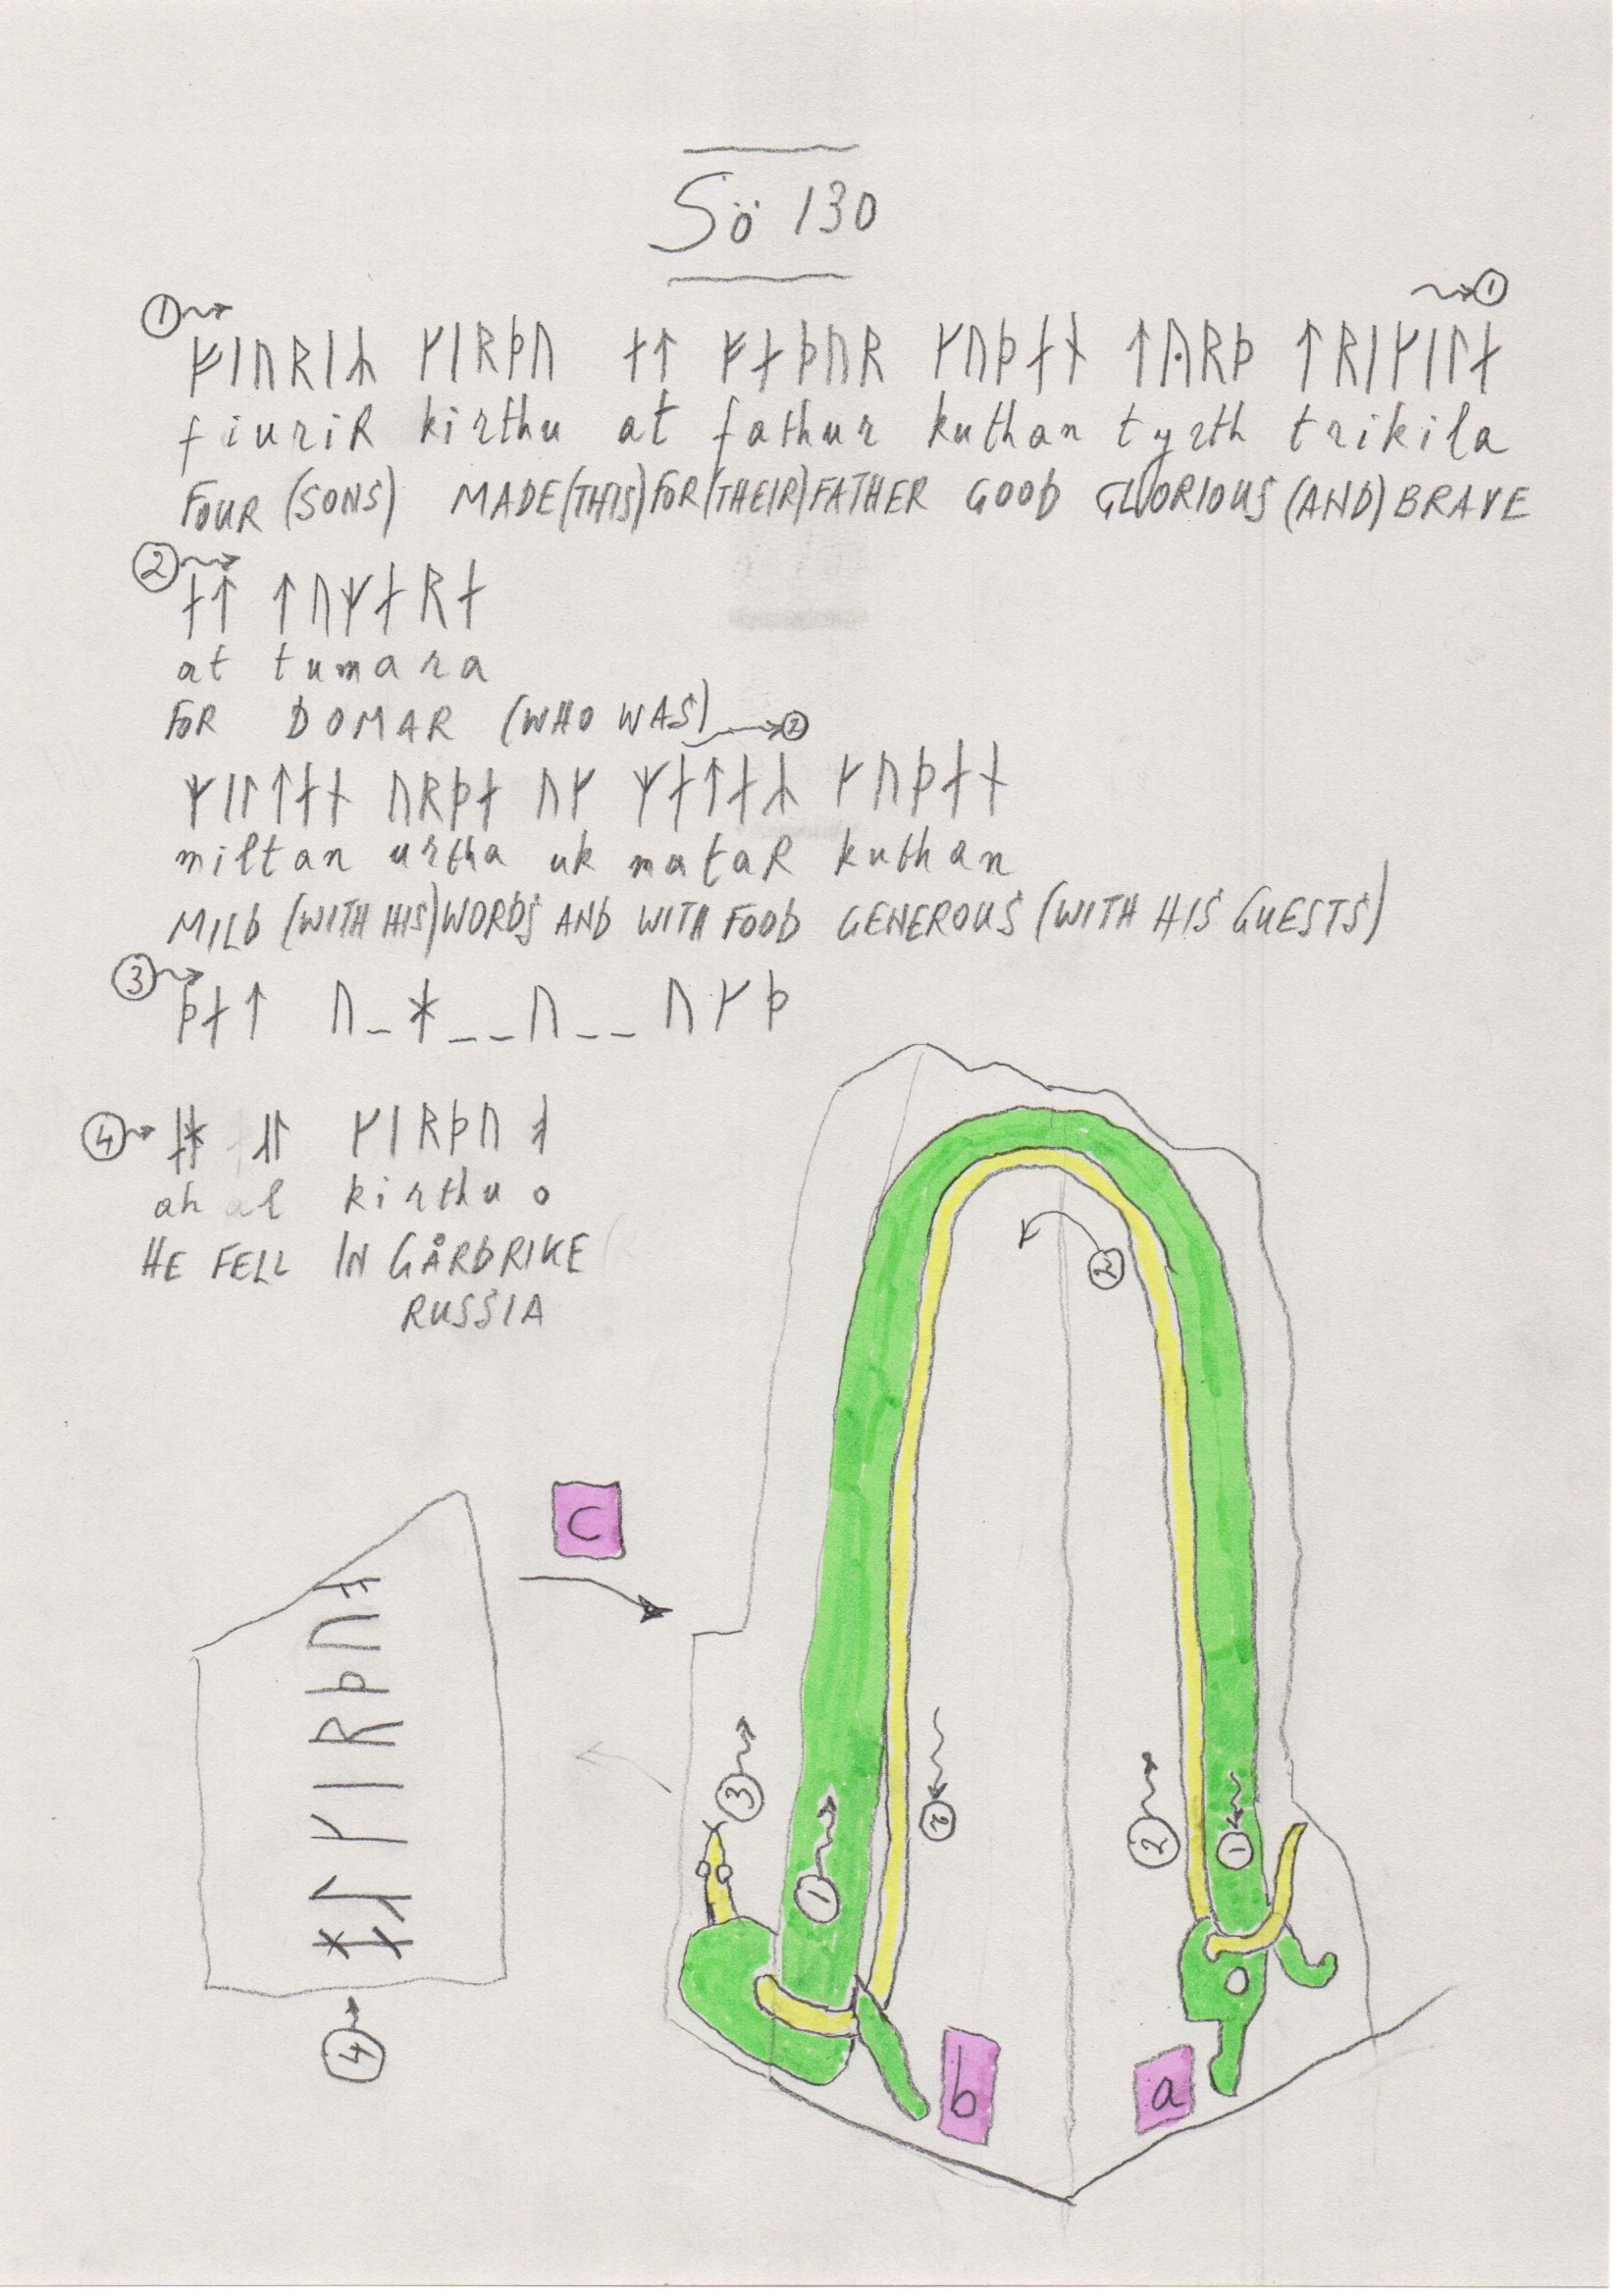 Sö 130
① ①
ᚠᛁᚢᚱᛁᛦ ᚴᛁᚱᚦᚢ ᛅᛏ ᚠᛅᚦᚢᚱ ᚴᚢᚦᛅᚾ ᛏᚤᚱᚦ ᛏᚱᛁᚴᛁᛚᛅ
fiuriR kirthu at fathur kuthan tyrth trikila
FOUR (SONS) MADE (THIS) FOR (THEIR) FATHER GOOD GLORIOUS (AND) BRAVE
②
ᛅᛏ ᛏᚢᛘᛅᚱᛅ
at tumara
FOR DOMAR (WHO WAS) ②
ᛘᛁᛚᛏᛅᚾ ᚢᚱᚦᛅ ᚢᚴ ᛘᛅᛏᛅᛦ ᚴᚢᚦᛅᚾ
miltan urtha uk mataR kuthan
MILD (WITH HIS) WORDS AND WITH FOOD GENEROUS (WITH HIS GUESTS)
③
ᚦᛅᛏ ᚢ_ᚼ__ᚢ__ᚢᚴᚦ
④ ᛅᚼ ᛅᛚ ᚴᛁᚱᚦᚢ ᚬ
ah al kirthu o
HE FELL IN GÅRDRIKE
RUSSIA
②
c
③ ① ② ② ①
ᚴᛁᚱᚦᚢᚬ
④
b a